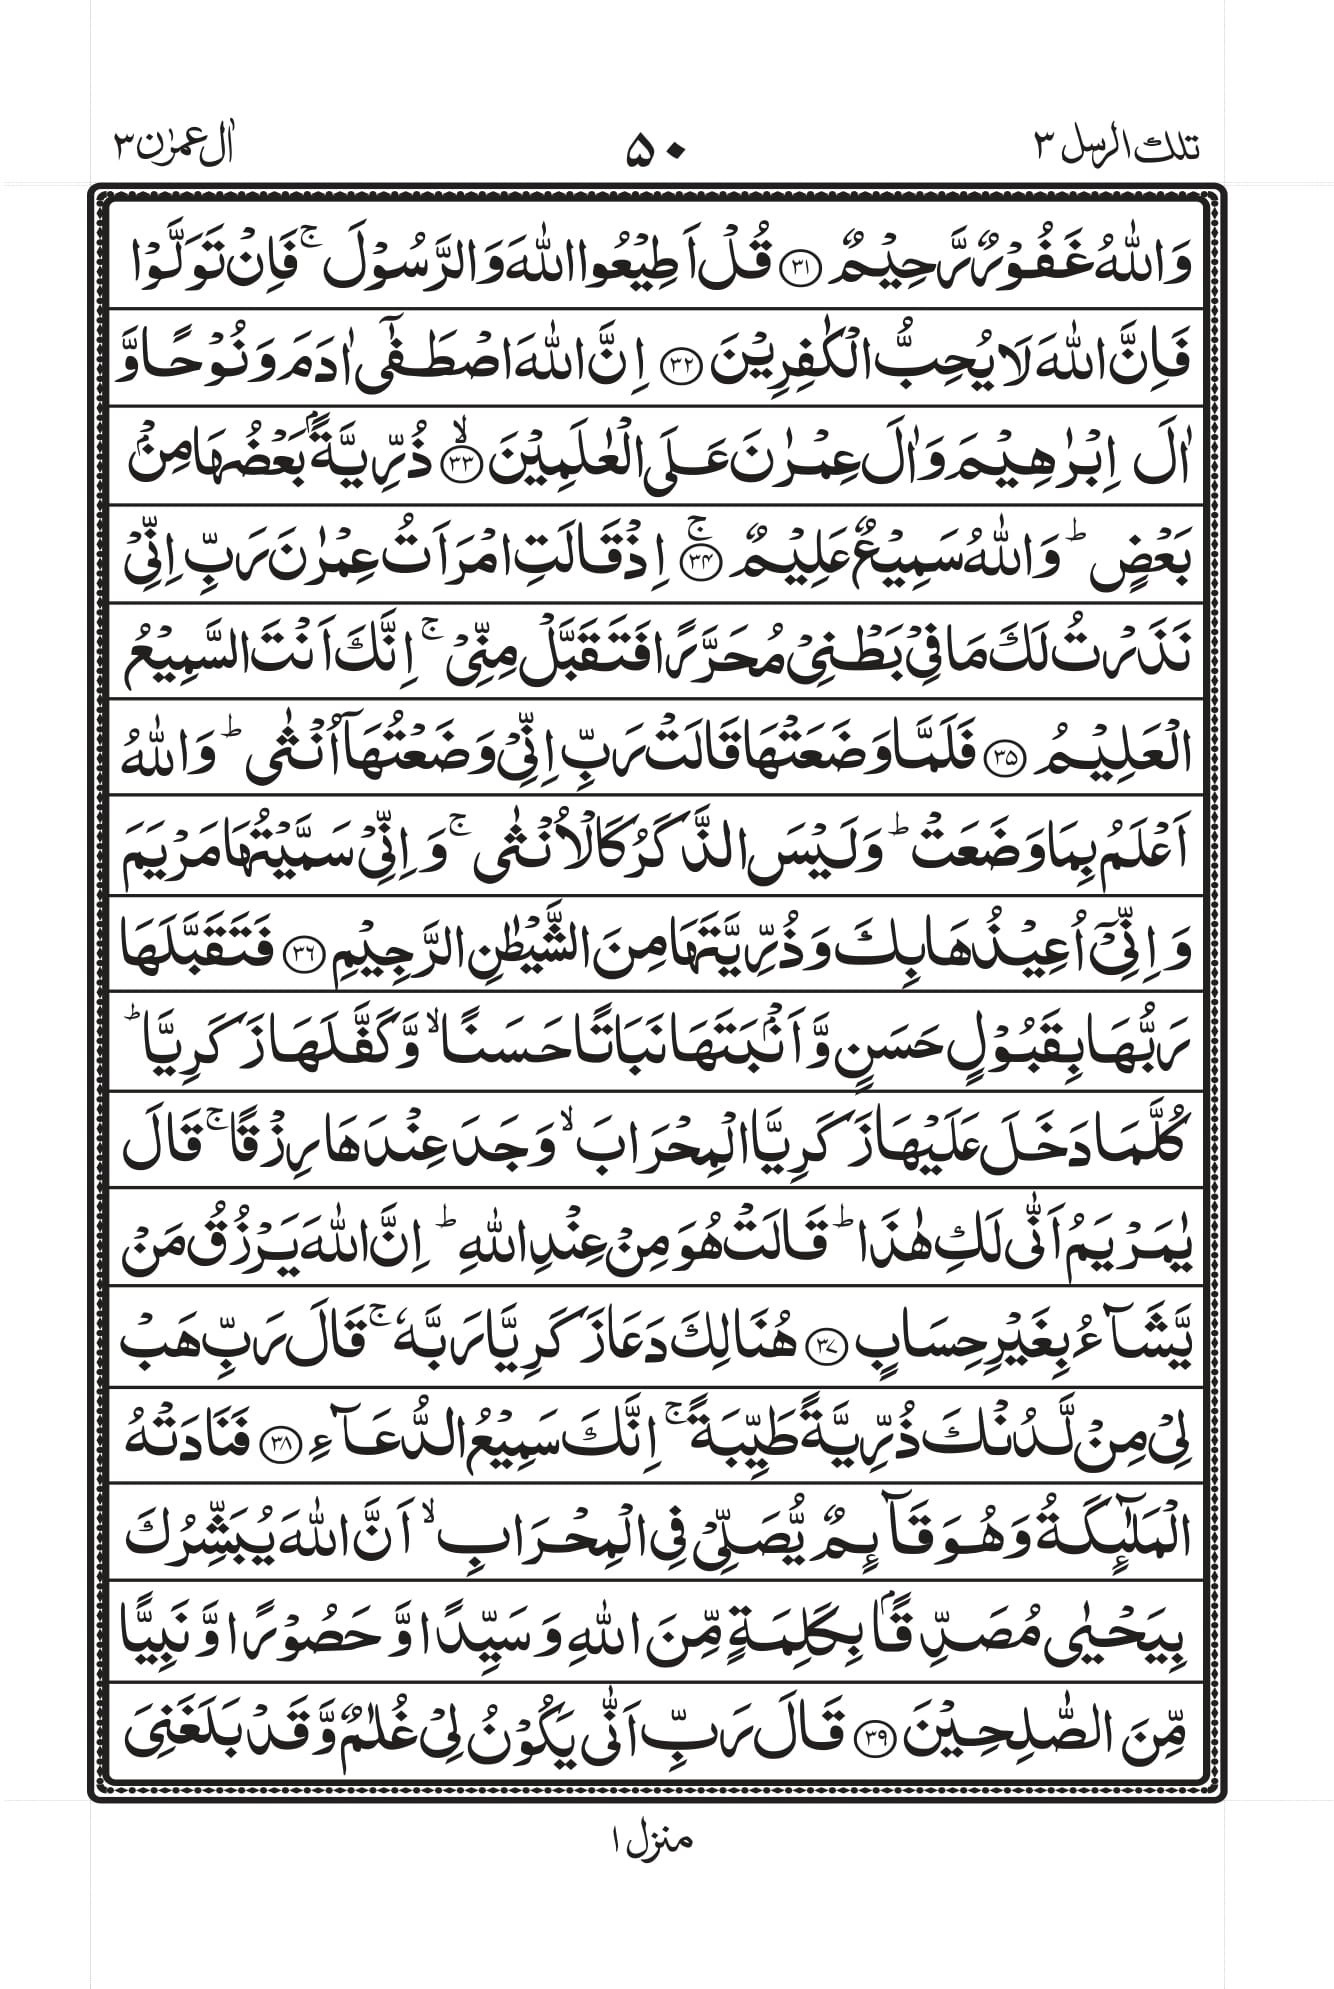 تلك الرسل ٣
٥٠
اٰل عمرٰن ٣
وَاللّٰهُ غَفُوْرٌ رَّحِيْمٌ ﴿٣١﴾ قُلْ اَطِيْعُوا اللّٰهَ وَالرَّسُوْلَ ۚ فَاِنْ تَوَلَّوْا
فَاِنَّ اللّٰهَ لَا يُحِبُّ الْكٰفِرِيْنَ ﴿٣٢﴾ اِنَّ اللّٰهَ اصْطَفٰٓى اٰدَمَ وَنُوْحًا وَّ
اٰلَ اِبْرٰهِيْمَ وَاٰلَ عِمْرٰنَ عَلَى الْعٰلَمِيْنَ ﴿٣٣﴾ۙ ذُرِّيَّةًۢ بَعْضُهَا مِنْۢ
بَعْضٍ ؕ وَاللّٰهُ سَمِيْعٌ عَلِيْمٌ ﴿٣٤﴾ۚ اِذْ قَالَتِ امْرَاَتُ عِمْرٰنَ رَبِّ اِنِّيْ
نَذَرْتُ لَكَ مَا فِيْ بَطْنِيْ مُحَرَّرًا فَتَقَبَّلْ مِنِّيْ ۚ اِنَّكَ اَنْتَ السَّمِيْعُ
الْعَلِيْمُ ﴿٣٥﴾ فَلَمَّا وَضَعَتْهَا قَالَتْ رَبِّ اِنِّيْ وَضَعْتُهَاۤ اُنْثٰى ؕ وَاللّٰهُ
اَعْلَمُ بِمَا وَضَعَتْ ؕ وَلَيْسَ الذَّكَرُ كَالْاُنْثٰى ۚ وَاِنِّيْ سَمَّيْتُهَا مَرْيَمَ
وَاِنِّيْۤ اُعِيْذُهَا بِكَ وَذُرِّيَّتَهَا مِنَ الشَّيْطٰنِ الرَّجِيْمِ ﴿٣٦﴾ فَتَقَبَّلَهَا
رَبُّهَا بِقَبُوْلٍ حَسَنٍ وَّاَنْۢبَتَهَا نَبَاتًا حَسَنًا ۙ وَّكَفَّلَهَا زَكَرِيَّا ؕ
كُلَّمَا دَخَلَ عَلَيْهَا زَكَرِيَّا الْمِحْرَابَ ۙ وَجَدَ عِنْدَهَا رِزْقًا ۚ قَالَ
يٰمَرْيَمُ اَنّٰى لَكِ هٰذَا ؕ قَالَتْ هُوَ مِنْ عِنْدِ اللّٰهِ ؕ اِنَّ اللّٰهَ يَرْزُقُ مَنْ
يَّشَآءُ بِغَيْرِ حِسَابٍ ﴿٣٧﴾ هُنَالِكَ دَعَا زَكَرِيَّا رَبَّهٗ ۚ قَالَ رَبِّ هَبْ
لِيْ مِنْ لَّدُنْكَ ذُرِّيَّةً طَيِّبَةً ۚ اِنَّكَ سَمِيْعُ الدُّعَآءِ ﴿٣٨﴾ فَنَادَتْهُ
الْمَلٰٓئِكَةُ وَهُوَ قَآئِمٌ يُّصَلِّيْ فِى الْمِحْرَابِ ۙ اَنَّ اللّٰهَ يُبَشِّرُكَ
بِيَحْيٰى مُصَدِّقًۢا بِكَلِمَةٍ مِّنَ اللّٰهِ وَسَيِّدًا وَّحَصُوْرًا وَّنَبِيًّا
مِّنَ الصّٰلِحِيْنَ ﴿٣٩﴾ قَالَ رَبِّ اَنّٰى يَكُوْنُ لِيْ غُلٰمٌ وَّقَدْ بَلَغَنِىَ
منزل ١